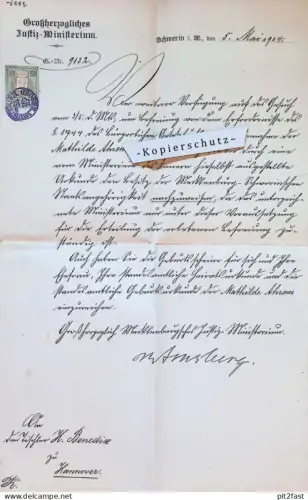 Großherzogliches
Justiz-Ministerium.
Schwerin i. M., den 5. Mai 1904.
G.-Nr. 9132
Vor weiterer Verfügung auf das Gesuch
vom 3/5. d. Mts. um Befreiung von dem Erfordernisse des
§ 1744 des Bürgerlichen
Mathilde Ahrem durch eine
vom Ministerium des Innern hieselbst ausgestellte
Urkunde den Besitz der Mecklenburg-Schwerinschen
Staatsangehörigkeit nachzuweisen, da das unterzeich-
nete Ministerium nur unter dieser Voraussetzung
für die Erteilung der erbetenen Befreiung zu-
ständig ist.
Auch haben Sie die Geburtsscheine für sich und Ihre
Ehefrau, Ihre standesamtliche Heiratsurkunde und die
standesamtliche Geburtsurkunde der Mathilde Ahrem
einzureichen.
Großherzoglich Mecklenburgisches Justiz-Ministerium.
An
den Tischler H. Benedix
zu
Hannover.
-Kopierschutz-
www.delcampe.net
pit2fast